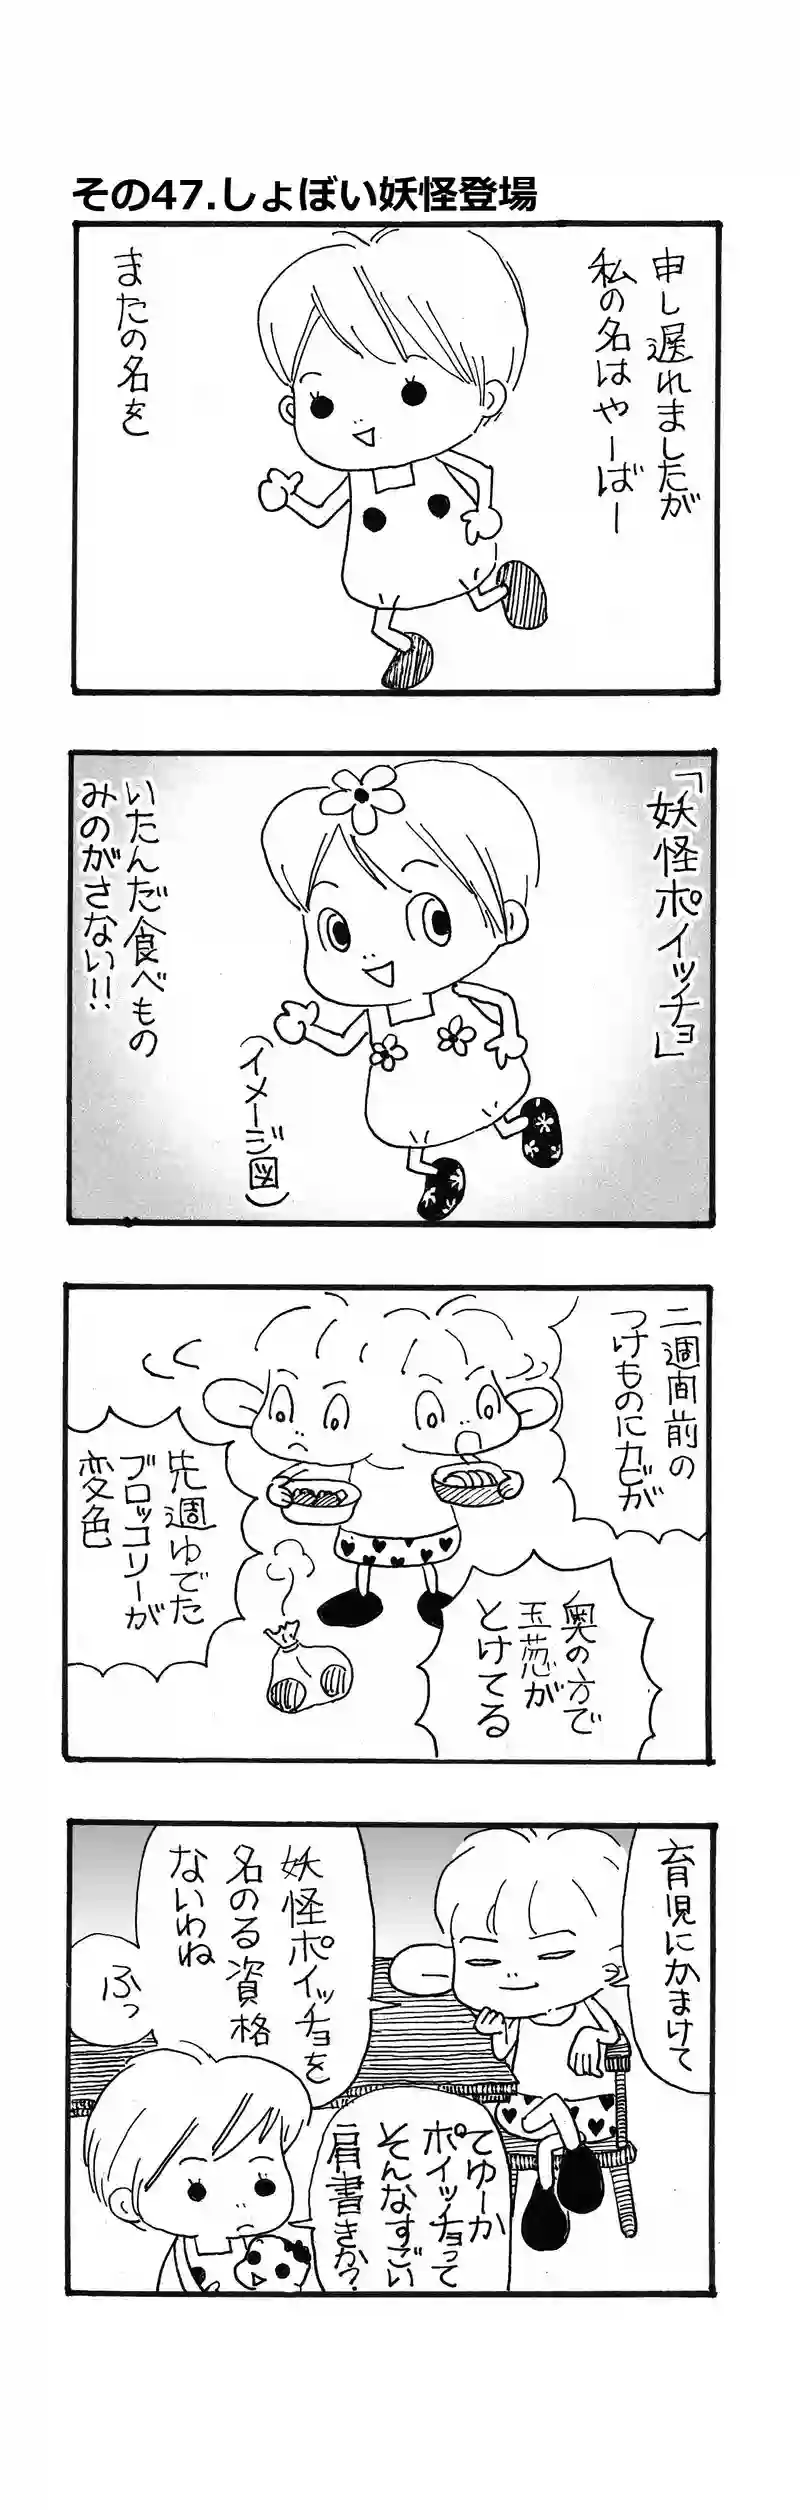 その47.しょぼい妖怪登場
申し遅れましたが
私の名はやーばー
またの名を
「妖怪ポイッチョ」
いたんだ食べもの
みのがさない!!
(イメージ図)
二週間前の
つけものにカビが
先週ゆでた
ブロッコリーが
変色
奥の方で
玉葱が
とけてる
育児にかまけて
妖怪ポイッチョを
名のる資格
ないわね
ふっ
てゆーか
ポイッチョって
そんなすごい
肩書きか?